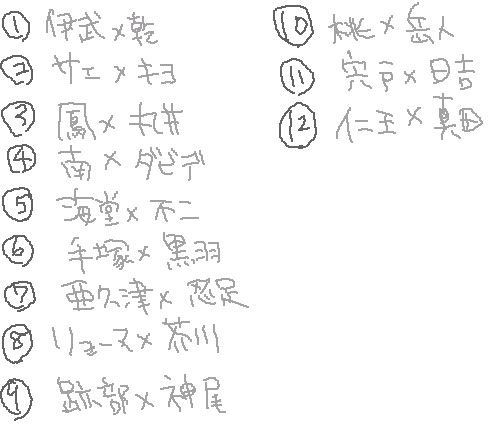 ① 伊武×乾
② サエ×キヨ
③ 鳳×丸井
④ 南×ダビデ
⑤ 海堂×不二
⑥ 手塚×黒羽
⑦ 亜久津×忍足
⑧ リョーマ×芥川
⑨ 跡部×神尾
⑩ 桃×岳人
⑪ 宍戸×日吉
⑫ 仁王×真田